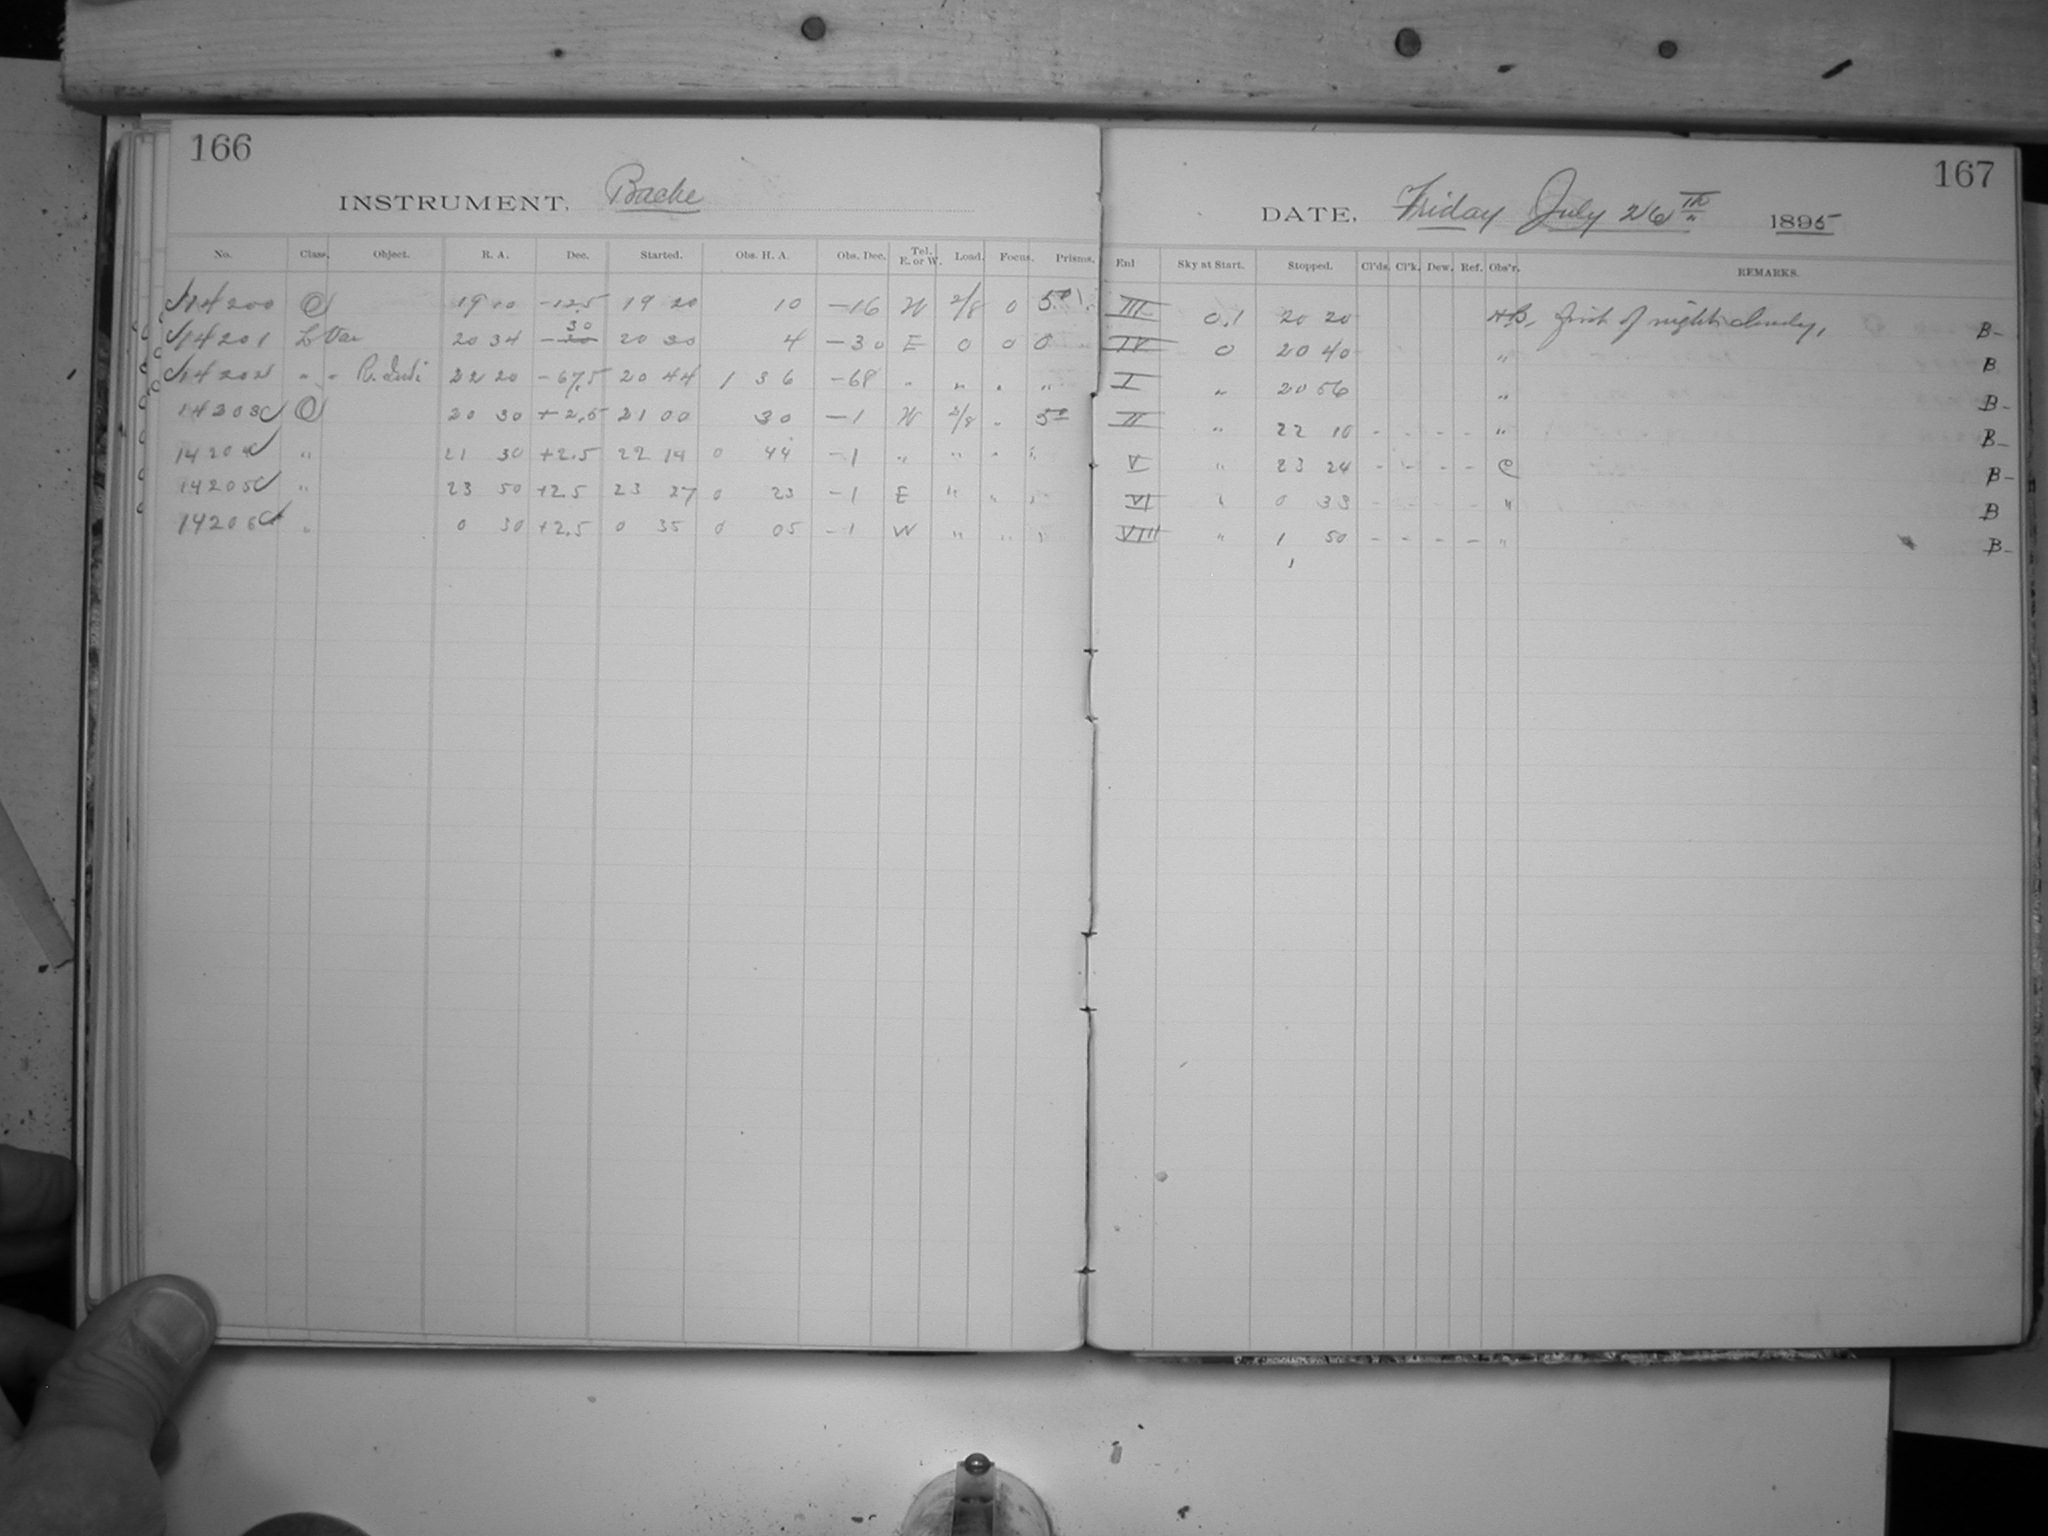 166
INSTRUMENT. Bache
No. Class. Object. R. A. Dec. Started. Obs. H. A. Obs. Dec. Tel. E. or W. Load. Focus. Prisms.
14200 19 10 -12.5 19 20 10 -16 W 2/8 0 5
14201 L Var 20 34 -30 20 30 4 -30 E 0 0 0
14202 " " R. Indi 22 20 -67.5 20 44 1 36 -68 " " " "
14203 20 30 +2.5 21 00 30 -1 W 2/8 "
14204 " 21 30 +2.5 22 14 0 44 -1 " " " "
14205 " 23 50 +2.5 23 27 0 23 -1 E " " "
14206 " 0 30 +2.5 0 35 0 05 -1 W " " "
167
DATE. Friday July 26th 1895
Enl Sky at Start. Stopped. Cl'ds. Cl'k. Dew. Ref. Obs'r. REMARKS.
III 0.1 20 20 first of night cloudy, B-
IV 0 20 40 " B
I " 20 56 " B-
II " 22 10 - - - - " B-
V " 23 24 - - - - C B-
VI " 0 33 - - - - " B
VIII " 1 50 - - - - " B-